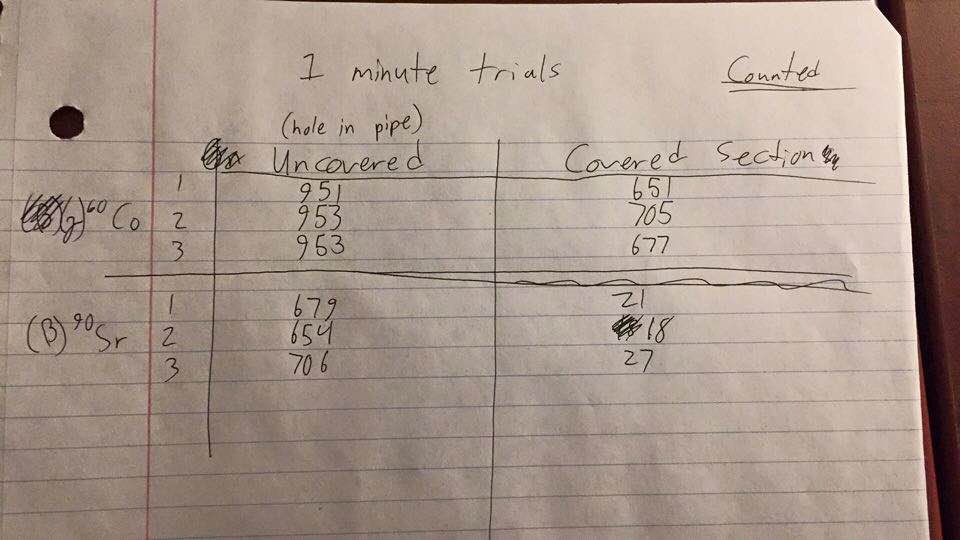 1 minute trials
Counted
(hole in pipe)
Uncovered Covered Section
1 951 651
(γ)⁶⁰Co 2 953 705
3 953 677
1 679 21
(B)⁹⁰Sr 2 654 18
3 706 27